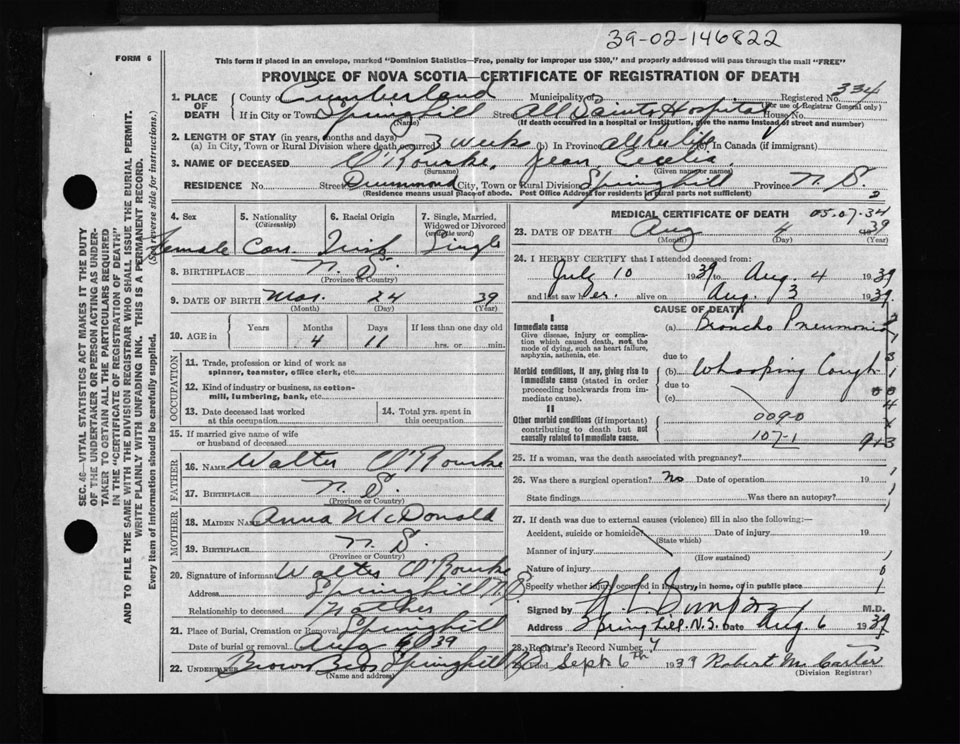 39-02-146822
FORM 6
This form if placed in an envelope, marked "Dominion Statistics—Free, penalty for improper use $300," and properly addressed will pass through the mail "FREE"
PROVINCE OF NOVA SCOTIA—CERTIFICATE OF REGISTRATION OF DEATH
1. PLACE OF DEATH County of Cumberland Municipality of Registered No. 334
(For use of Registrar General only)
If in City or Town Springhill Street All Saints Hospital House No.
(Name) (If death occurred in a hospital or institution, give the name instead of street and number)
2. LENGTH OF STAY (in years, months and days)
(a) In City, Town or Rural Division where death occurred 3 weeks (b) In Province all her life (c) In Canada (if immigrant)
3. NAME OF DECEASED O'Rourke, Jean Cecelia
(Surname) (Given name or names)
RESIDENCE No. Street Drummond City, Town or Rural Division Springhill Province N. S.
(Residence means usual place of abode. Post Office Address for residents in rural parts not sufficient)
4. Sex Female
5. Nationality (Citizenship) Can.
6. Racial Origin Irish
7. Single, Married, Widowed or Divorced (write the word) Single
8. BIRTHPLACE N. S.
(Province or Country)
9. DATE OF BIRTH Mar. 24 39
(Month) (Day) (Year)
10. AGE in Years Months 4 Days 11 If less than one day old hrs. or min.
OCCUPATION
11. Trade, profession or kind of work as spinner, teamster, office clerk, etc.
12. Kind of industry or business, as cotton-mill, lumbering, bank, etc.
13. Date deceased last worked at this occupation
14. Total yrs. spent in this occupation
15. If married give name of wife or husband of deceased
FATHER
16. NAME Walter O'Rourke
17. BIRTHPLACE N. S.
(Province or Country)
MOTHER
18. MAIDEN NAME Anna McDonald
19. BIRTHPLACE N. S.
(Province or Country)
20. Signature of informant Walter O'Rourke
Address Springhill N.S.
Relationship to deceased
21. Place of Burial, Cremation or Removal Springhill
Date of burial or removal Aug 39
22. UNDERTAKER Brown Bros Springhill
(Name and address)
MEDICAL CERTIFICATE OF DEATH 05.07.34
23. DATE OF DEATH Aug 4 1939
(Month) (Day) (Year)
24. I HEREBY CERTIFY that I attended deceased from:
July 10 1939 to Aug. 4 1939
and last saw her alive on Aug. 3 1939
CAUSE OF DEATH
I
Immediate cause (a) Broncho Pneumonia
Give disease, injury or complication which caused death, not the mode of dying, such as heart failure, asphyxia, asthenia, etc.
due to
Morbid conditions, if any, giving rise to immediate cause (stated in order proceeding backwards from immediate cause). (b) Whooping Cough
due to
(c)
II
Other morbid conditions (if important) contributing to death but not causally related to immediate cause. 009-0
107-1
25. If a woman, was the death associated with pregnancy?
26. Was there a surgical operation? No Date of operation 19
State findings Was there an autopsy?
27. If death was due to external causes (violence) fill in also the following:—
Accident, suicide or homicide? Date of injury 19
(State which)
Manner of injury
(How sustained)
Nature of injury
Specify whether injury occurred in industry, in home, or in public place
Signed by M.D.
Address Springhill. N.S. Date Aug. 6 1939
28. Registrar's Record Number
Filed Sept 6th 1939 Robert M. Carter
(Division Registrar)
SEC. 46—VITAL STATISTICS ACT MAKES IT THE DUTY OF THE UNDERTAKER OR PERSON ACTING AS UNDERTAKER TO OBTAIN ALL THE PARTICULARS REQUIRED IN THE "CERTIFICATE OF REGISTRATION OF DEATH" AND TO FILE THE SAME WITH THE DIVISION REGISTRAR WHO SHALL ISSUE THE BURIAL PERMIT.
WRITE PLAINLY WITH UNFADING INK. THIS IS A PERMANENT RECORD.
Every item of information should be carefully supplied. (See reverse side for instructions.)